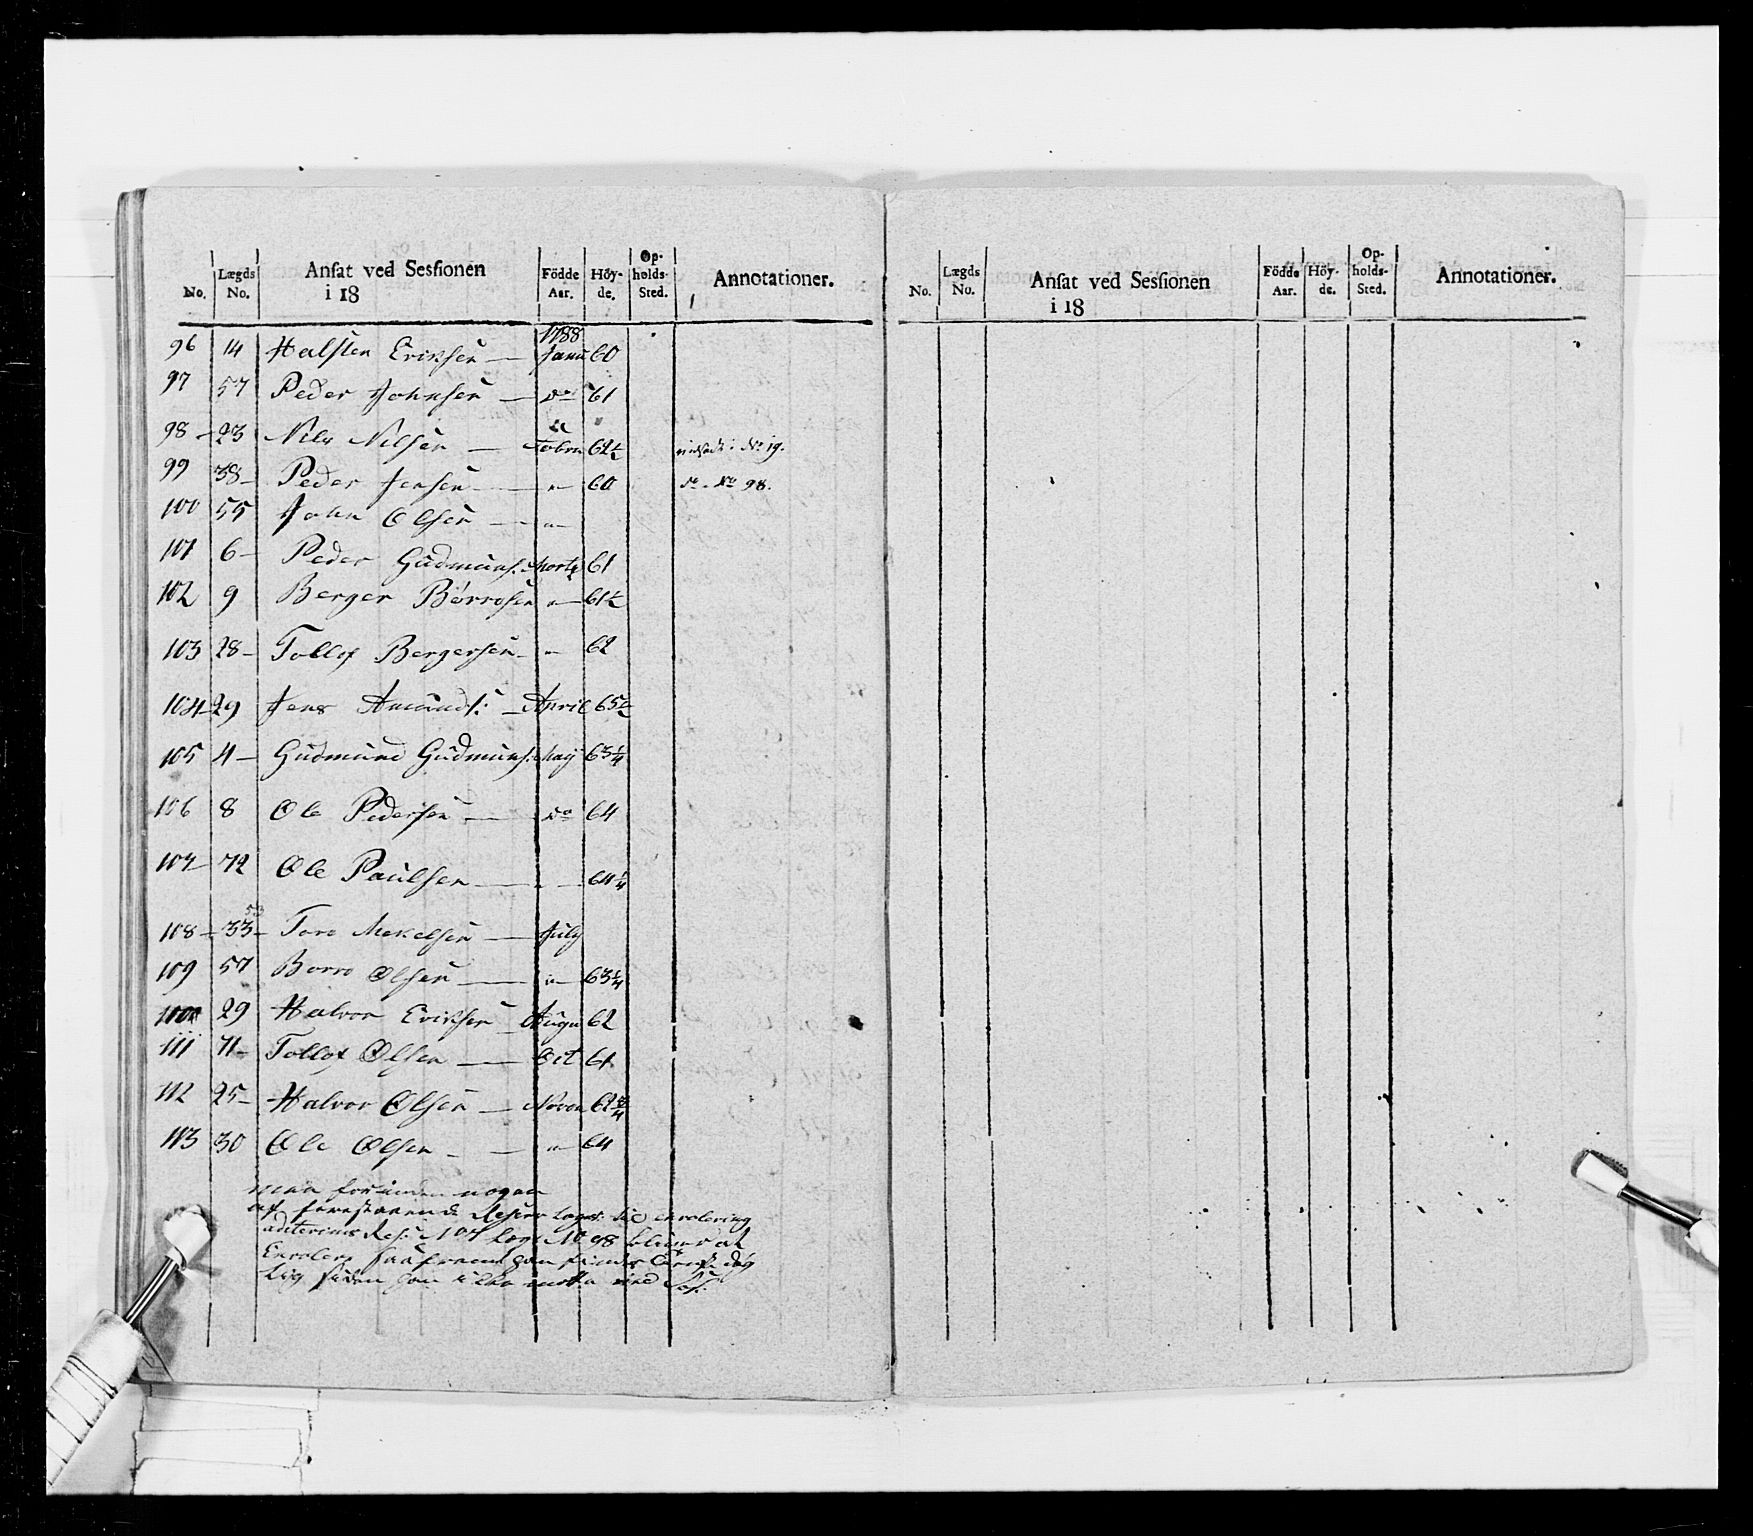 No. Lægds No. Ansat ved Sessionen i 18 Födde Aar. Höy- de. Op- holds- Sted. Annotationer.
96 14 Halsten Eriksen — 1788 Janu 60
97 57 Peder Johnsen — do 61
98 - 23 Nils Nilsen — Febru 62½ No 19.
99 38 - Peder Jensen — " 60 do. No 98.
100 55 John Olsen — "
101 6 - Peder Gudmuns: Marts 61
102 9 Berger Börresen " 61½
103 28 - Tollof Bergersen - " 62
104 - 29 Jens Amunds: - April 65½
105 4 - Gudmund Gudmuns: May 63¼
106 8 Ole Pedersen — do 64
107 - 72 Ole Paulsen — " 64¼
108 - 33 - 53 Tore Mekelsen — July
109 57 Borre Olsen — " 63¼
110 29 Halvor Eriksen - Augu 62
111 71 - Tollof Olsen — Oct 61
112 25 - Halvor Olsen — Novem 62¾
113 30 Ole Olsen - — " 64
nogen
af forestaaende til enrolering
107 Læg No 98 bliver at
han
siden han ikke med
No. Lægds No. Ansat ved Sessionen i 18 Födde Aar. Höy- de. Op- holds- Sted. Annotationer.